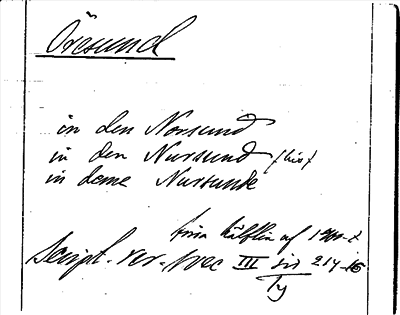 Öresund
in den Norsund
in den Nursund (bis)
in deme Nursunde
förra hälften af 1400-t
Script. rer. svec III sid 214-16
Ty